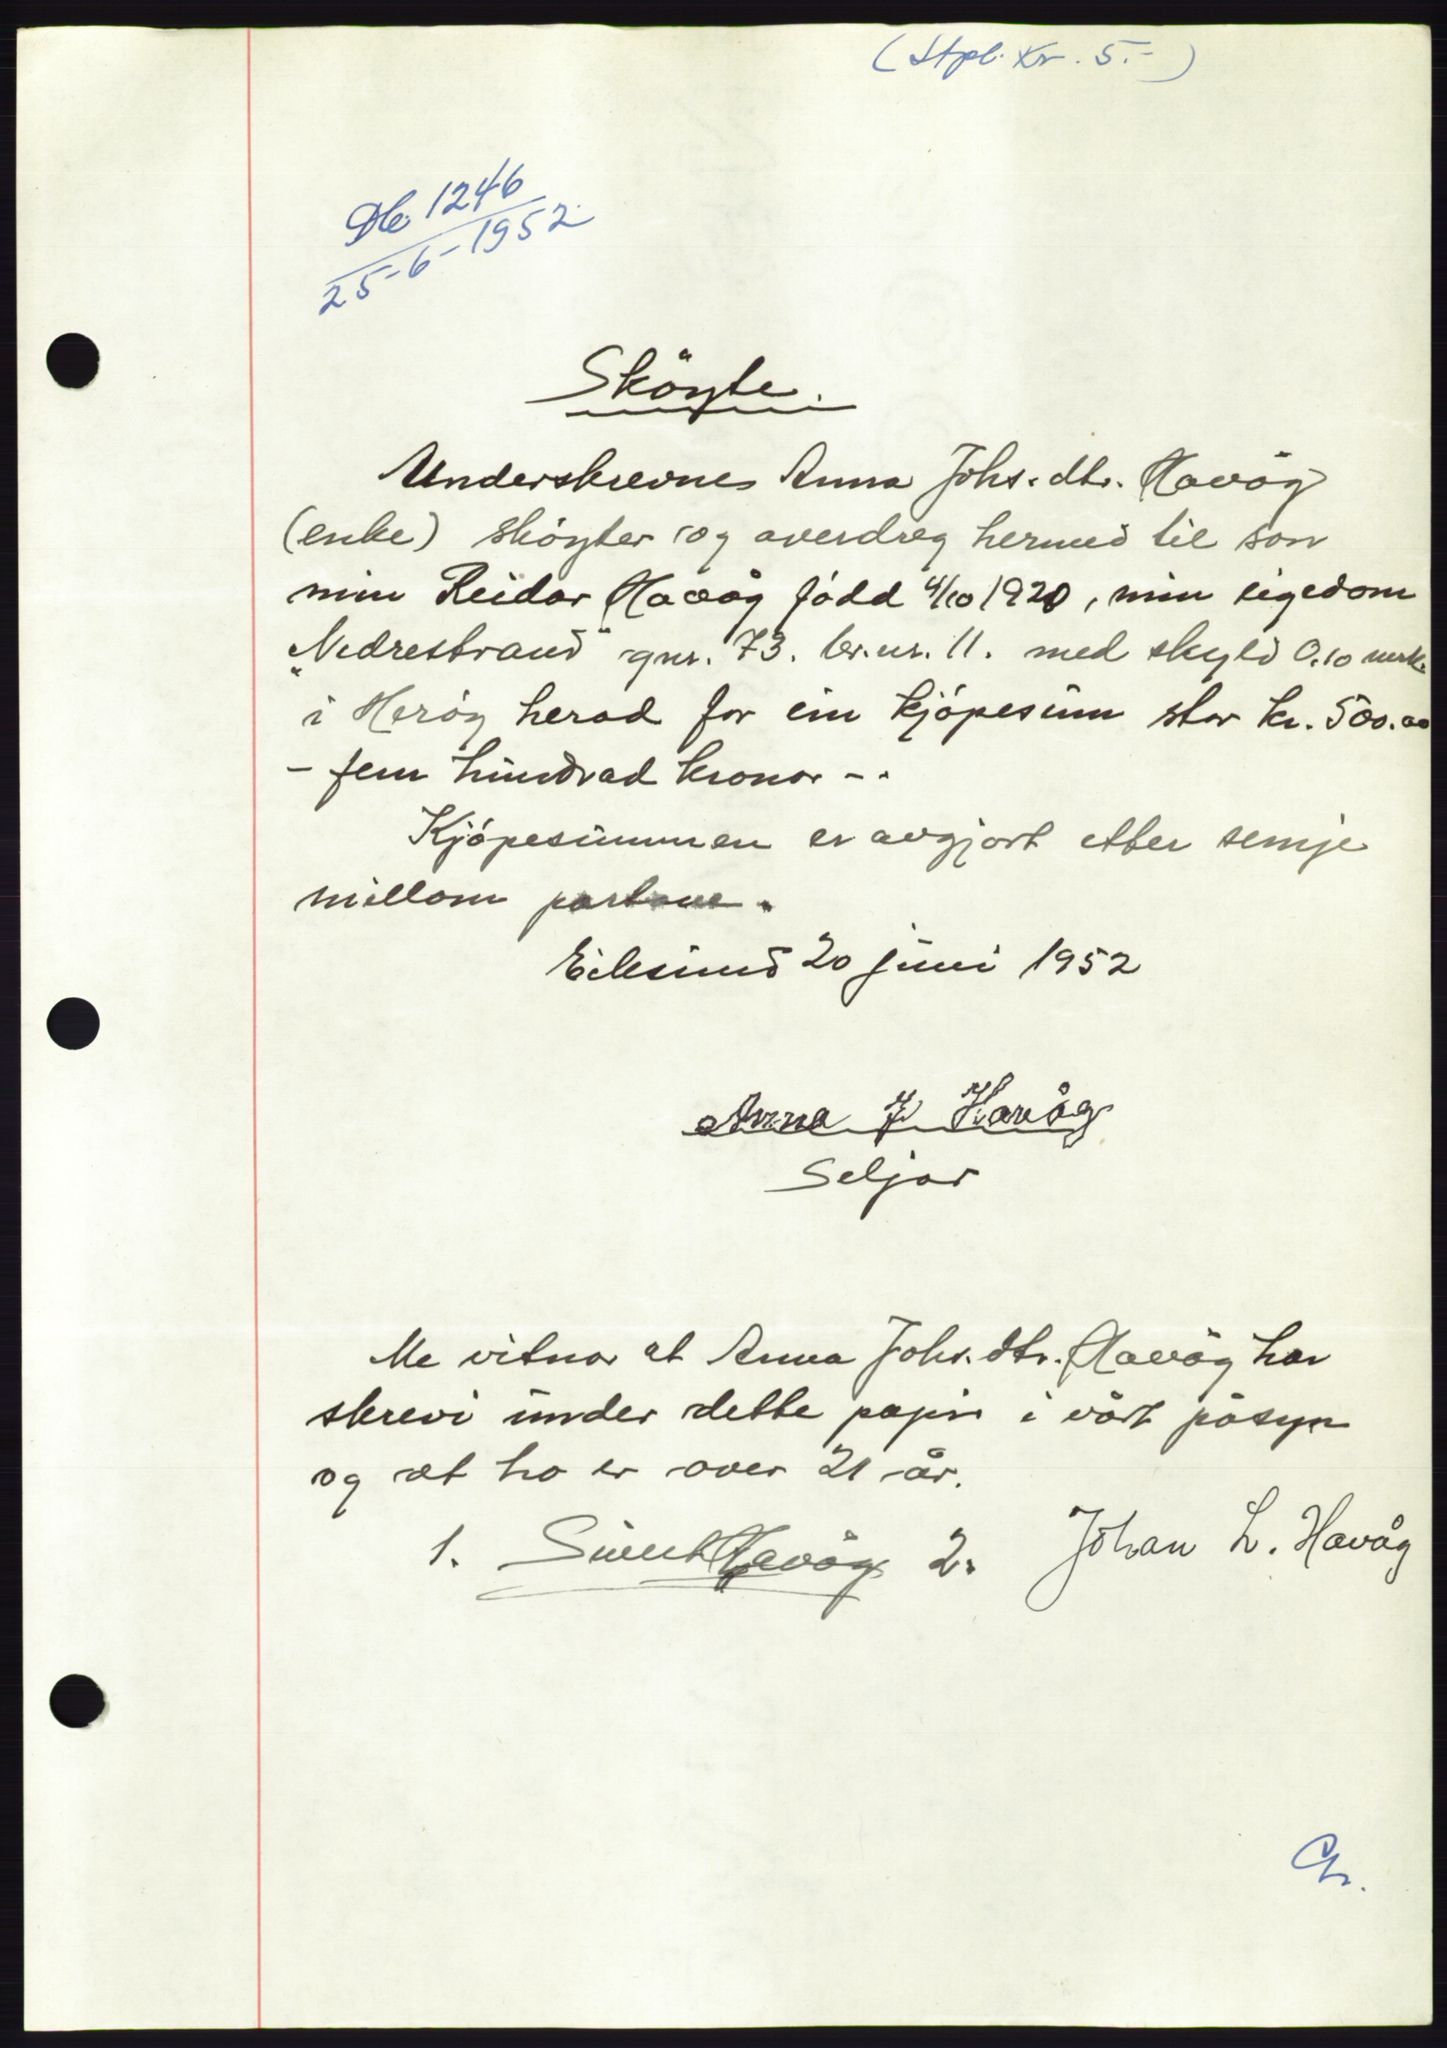 (Stpl. Kr. 5.-)
Db. 1246
25-6-1952
Sköyte.
Underskrevne Anna Johs.dtr. Havåg
(enke) sköyter og averdreg hermed til son
min Reidar Havåg född 4/10 1920, min eigedom
„Nedrestrand" gnr. 73. br.nr. 11. med skyld 0.10 mrk.
i Heröy herad for ein kjöpesum stor kr. 500.00
- fem hundrad kronor -.
Kjöpesummen er avgjort etter semje
millom partane.
Eiksund 20 juni 1952
Anna J Havåg
Seljar
Me vitnar at Anna Johs.dtr. Havåg har
skrevi under dette papir i vårt påsyn
og at ho er over 21 år.
1. Sivert Havåg 2. Johan L. Havåg